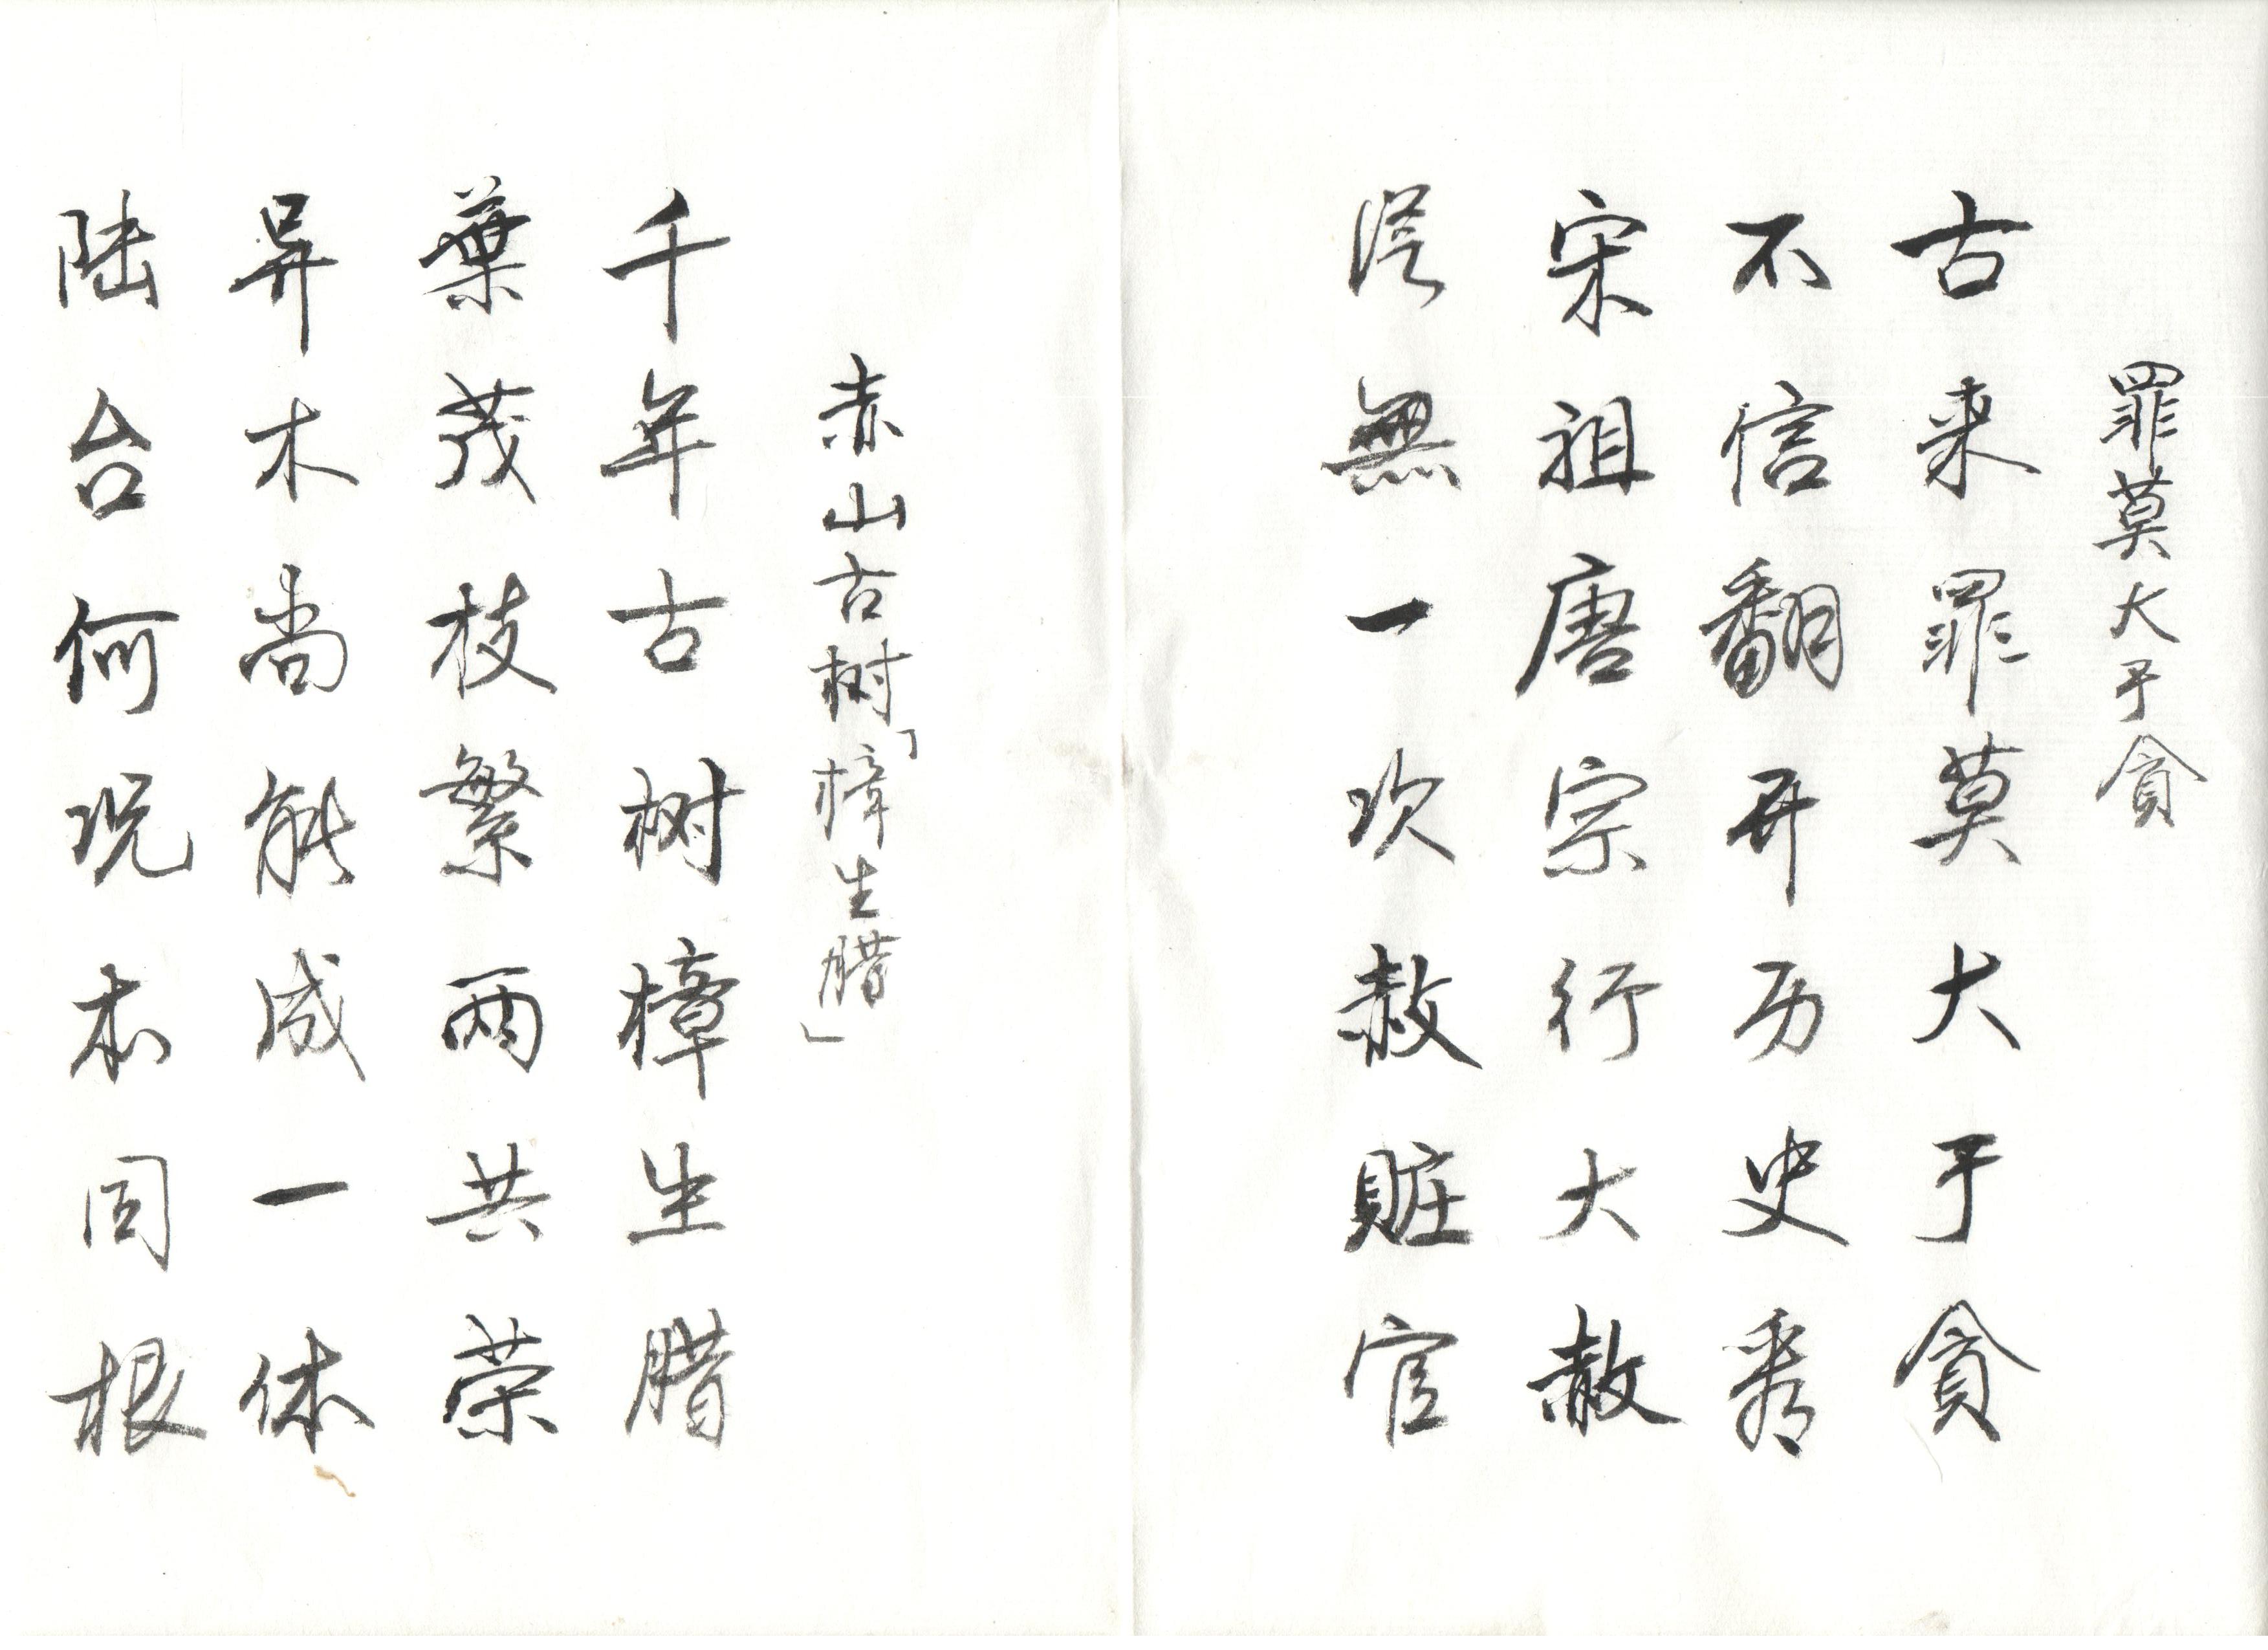 罪莫大于贪
古来罪莫大于贪
不信翻开历史看
宋祖唐宗行大赦
从無一次赦赃官
赤山古树「樟生腊」
千年古树樟生腊
葉茂枝繁两共荣
异木尚能成一体
陆台何况本同根